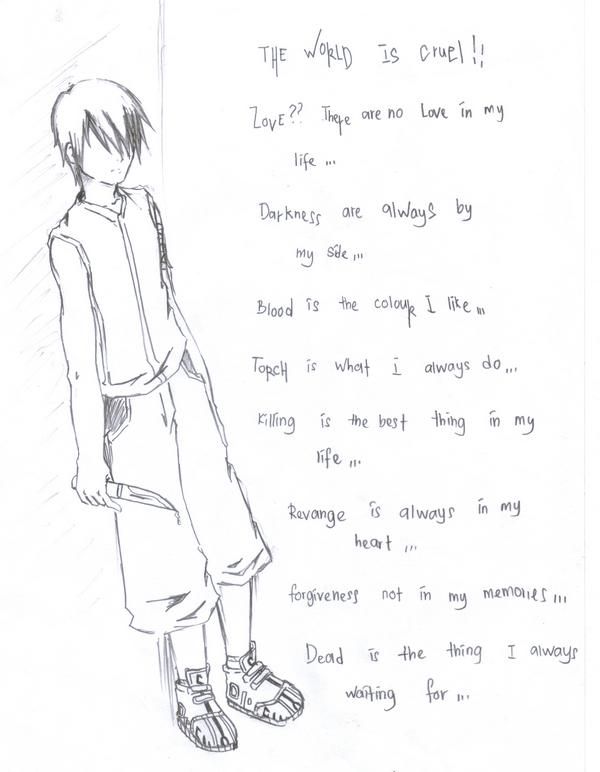 THE WORLD is cruel!!
LOVE?? There are no Love in my
life ...
Darkness are always by
my side...
Blood is the colour I like...
TORCH is what i always do...
Killing is the best thing in my
life ...
Revange is always in my
heart ...
forgiveness not in my memories...
Dead is the thing I always
waiting for...